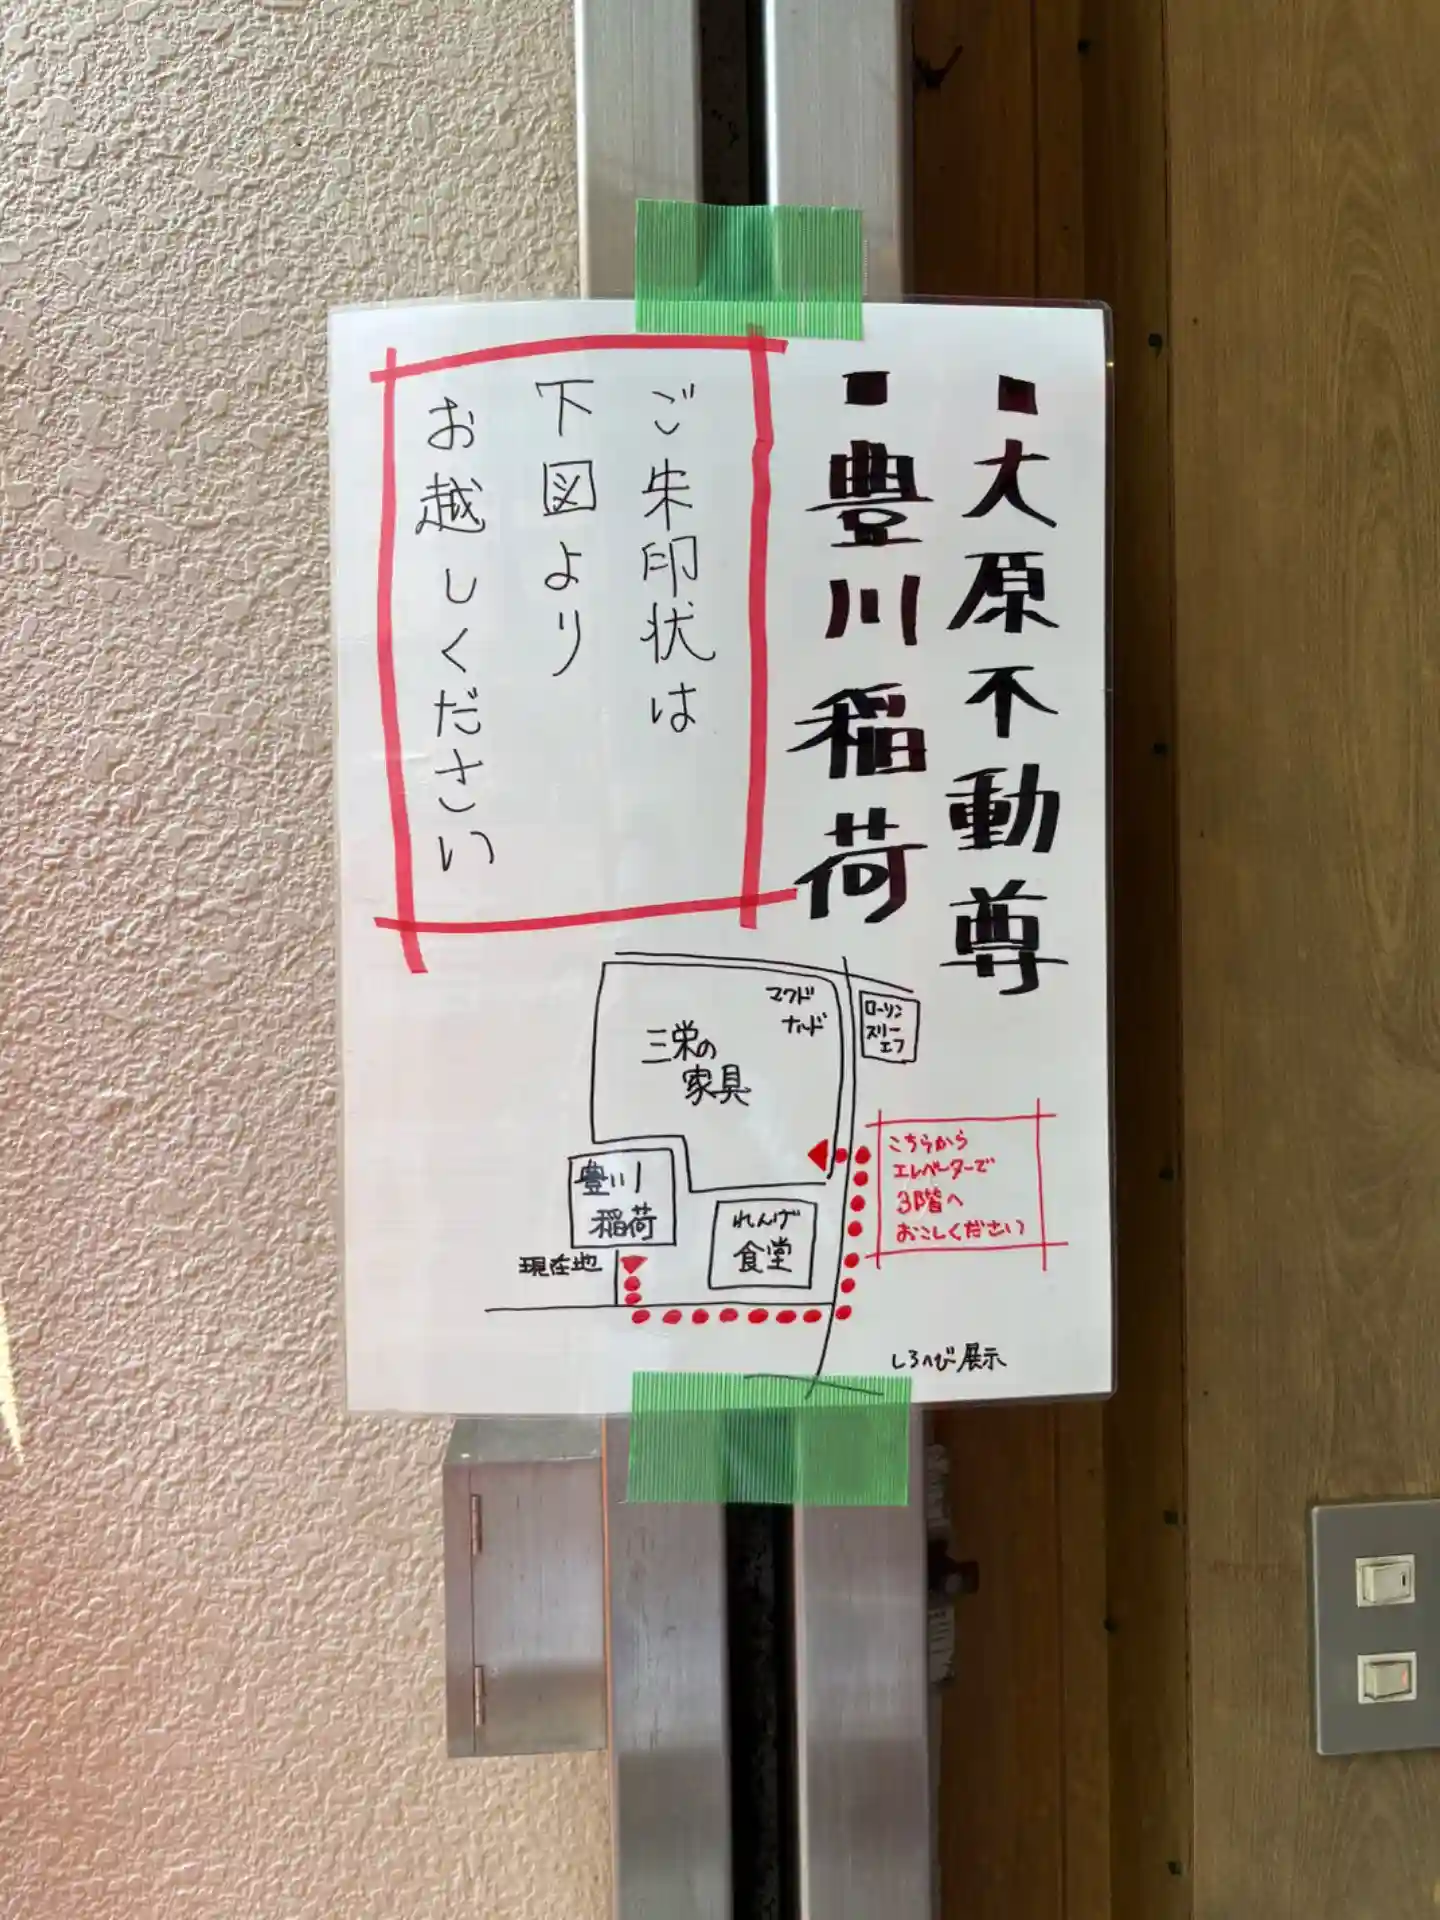 ■大原不動尊
■豊川稲荷
ご朱印状は
下図より
お越しください
マクド
ナルド
三栄の
家具
ローソン
スリー
エフ
豊川
稲荷
れんげ
食堂
現在地
こちらから
エレベーターで
3階へ
おこしください
しろへび展示